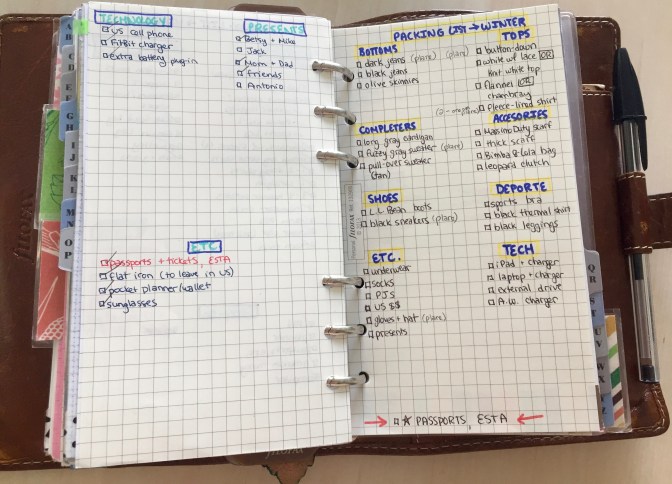 TECHNOLOGY
US cell phone
FitBit charger
extra battery plug-in
PRESENTS
Betsy + Mike
Jack
Mom + Dad
friends
Antonio
ETC
passports + tickets, ESTA
flat iron (to leave in US)
pocket planner/wallet
sunglasses
PACKING LIST → WINTER
BOTTOMS
dark jeans (plane) (plane)
black jeans
olive skinnies
TOPS
button-down
white w/ lace OR
knit white top
flannel OR
chambray
fleece-lined shirt
COMPLETERS
long gray cardigan
fuzzy gray sweater (plane)
pull-over sweater
(tan)
ACCESORIES
Massimo Dutty scarf
thick scarf
Bimba & Lola bag
leopard clutch
SHOES
L.L. Bean boots
black sneakers (plane)
DEPORTE
sports bra
black thermal shirt
black leggings
ETC.
underwear
socks
PJS
US $$
gloves + hat (plane)
presents
TECH
iPad + charger
laptop + charger
external drive
A.W. charger
→ ☆ PASSPORTS, ESTA ←
B
C
D
E
F
G
H
I
J
K
L
M
N
O
P
Q
R
filofax